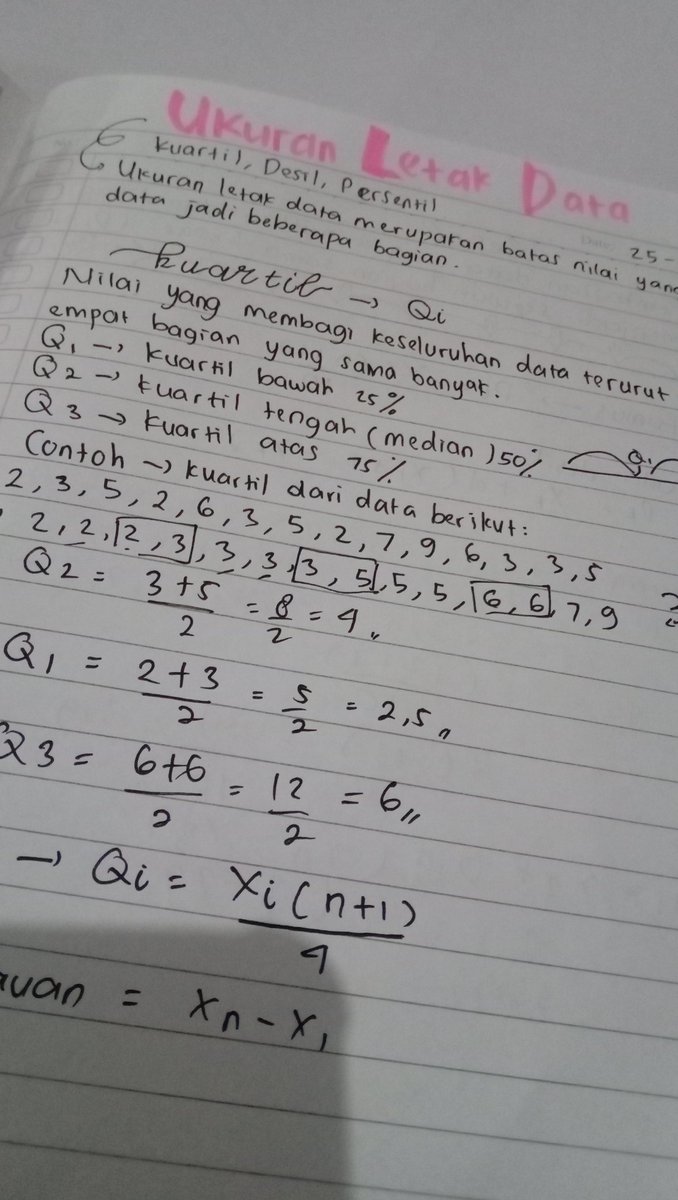 Ukuran Letak Data
Kuartil, Desil, Persentil
25-
Ukuran letak data merupakan batas nilai yang
data jadi beberapa bagian.
Kuartil → Qi
Nilai yang membagi keseluruhan data terurut
empat bagian yang sama banyak.
Q1 → kuartil bawah 25%
Q2 → kuartil tengah (median) 50%
Q3 → kuartil atas 75%
Contoh → kuartil dari data berikut:
2, 3, 5, 2, 6, 3, 5, 2, 7, 9, 6, 3, 3, 5
2, 2, 2, 3, 3, 3, 3, 5, 5, 5, 6, 6, 7, 9
Q2 = 3+5/2 = 8/2 = 4,,
Q1 = 2+3/2 = 5/2 = 2,5,,
Q3 = 6+6/2 = 12/2 = 6,,
→ Qi = Xi(n+1)/4
= Xn - X1